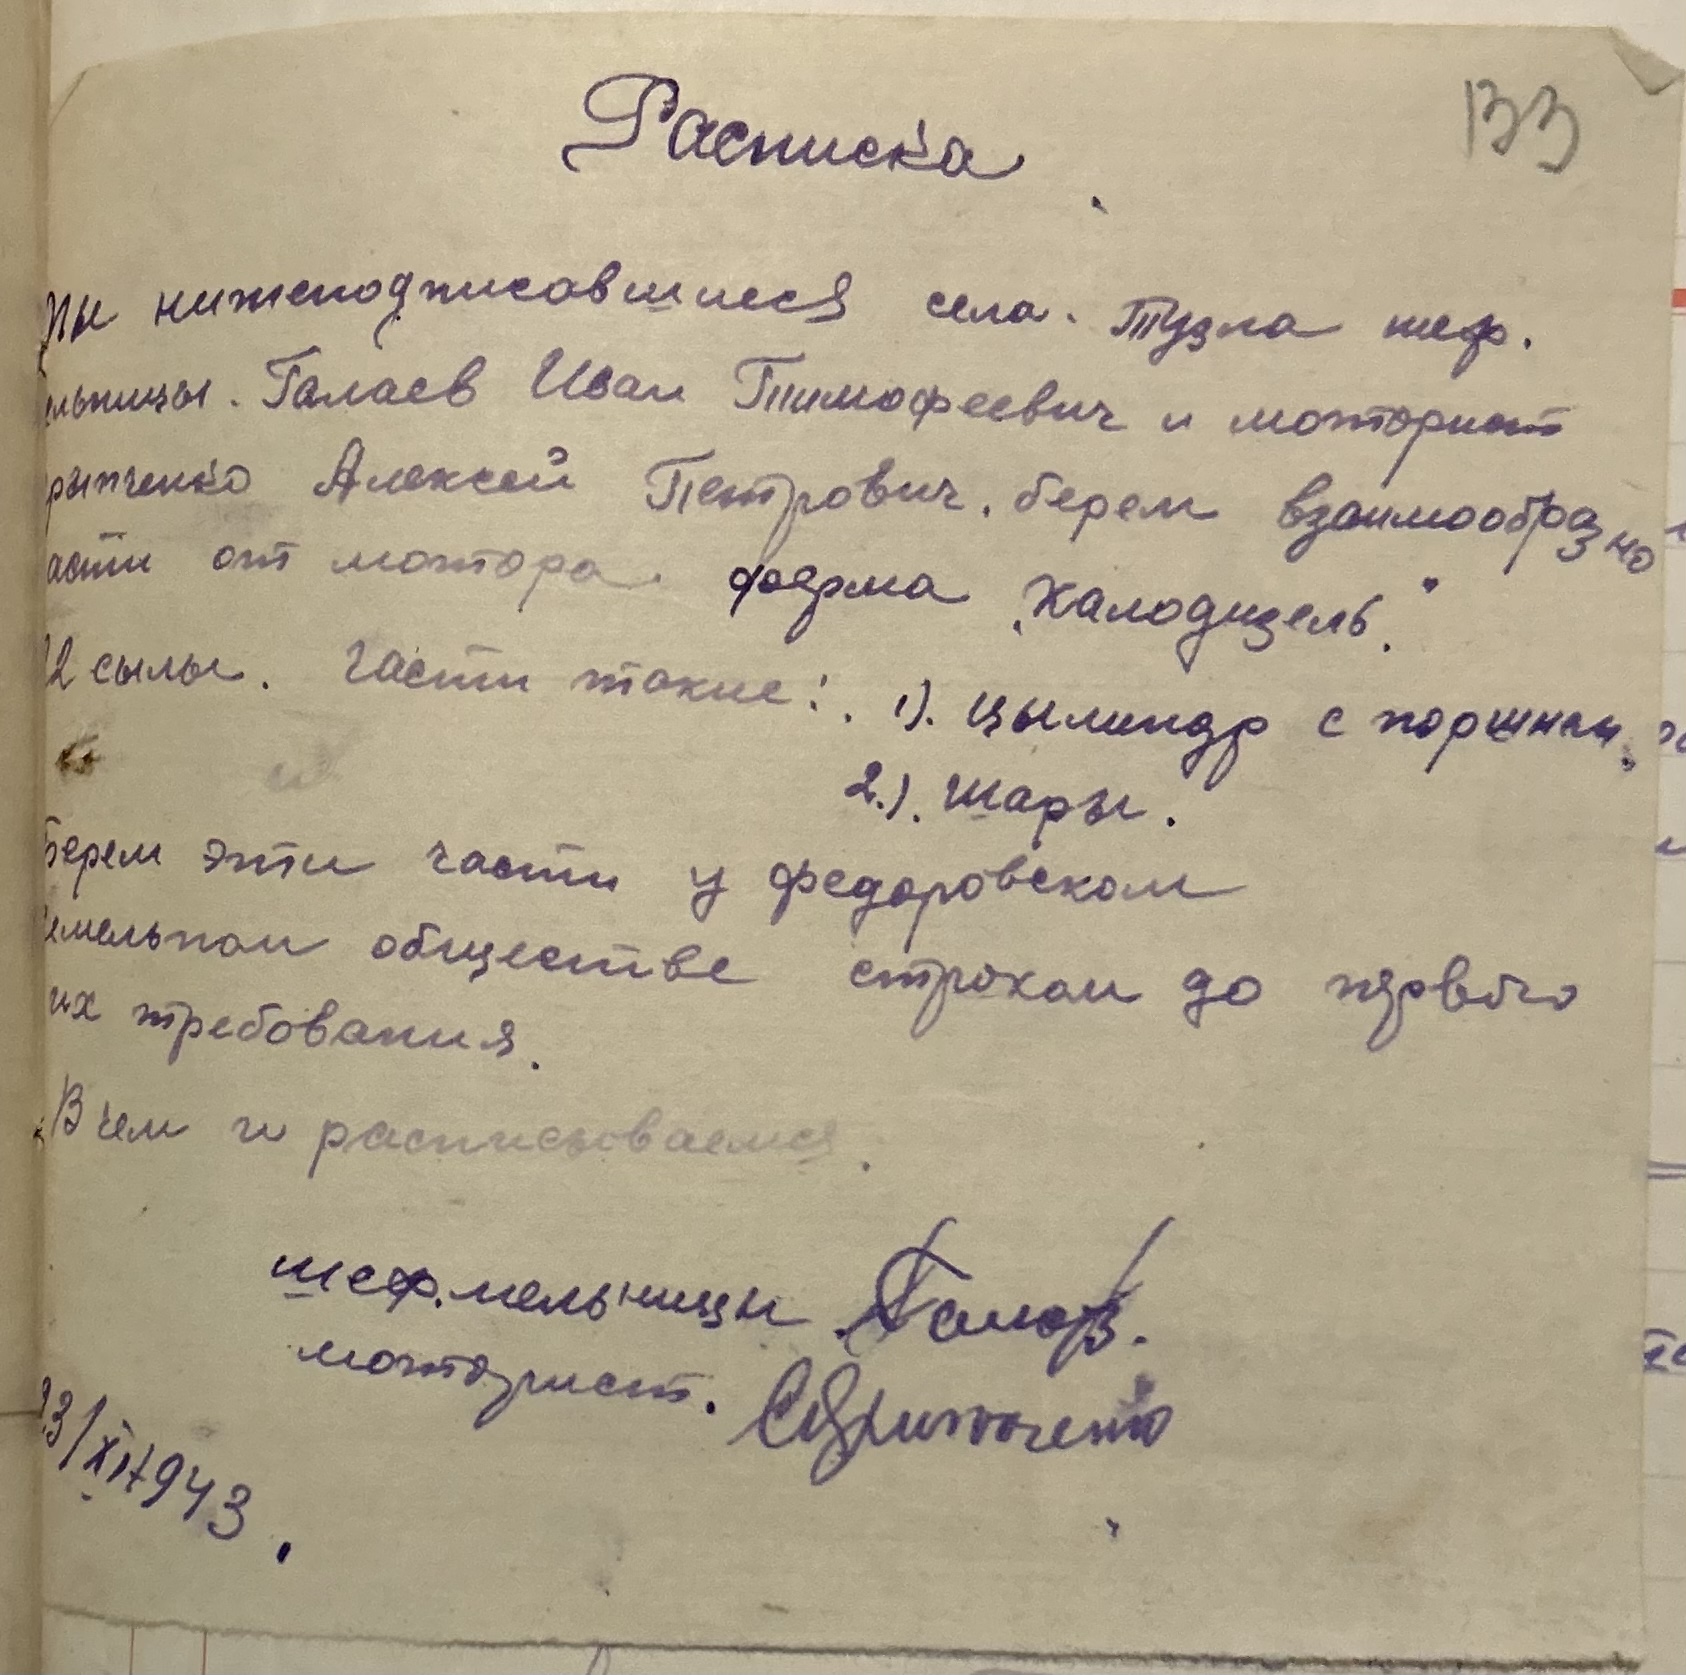 133
Расписка.
Мы нижеподписавшиеся села. Тузла шеф.
ельницы. Галаев Иван Тимофеевич и моторист
рыпченко Алексей Петрович. берем взаимообразно
асти от мотора. фярма „Калодизель".
12 сылы. Части такие: 1). Цылиндр с поршнем.
2.). Шары.
Берем эти части у федоровском
емельном обществе строком до первого
их требования.
В чем и расписоваемся.
шеф. мельницы
моторист.
23/XII-943.